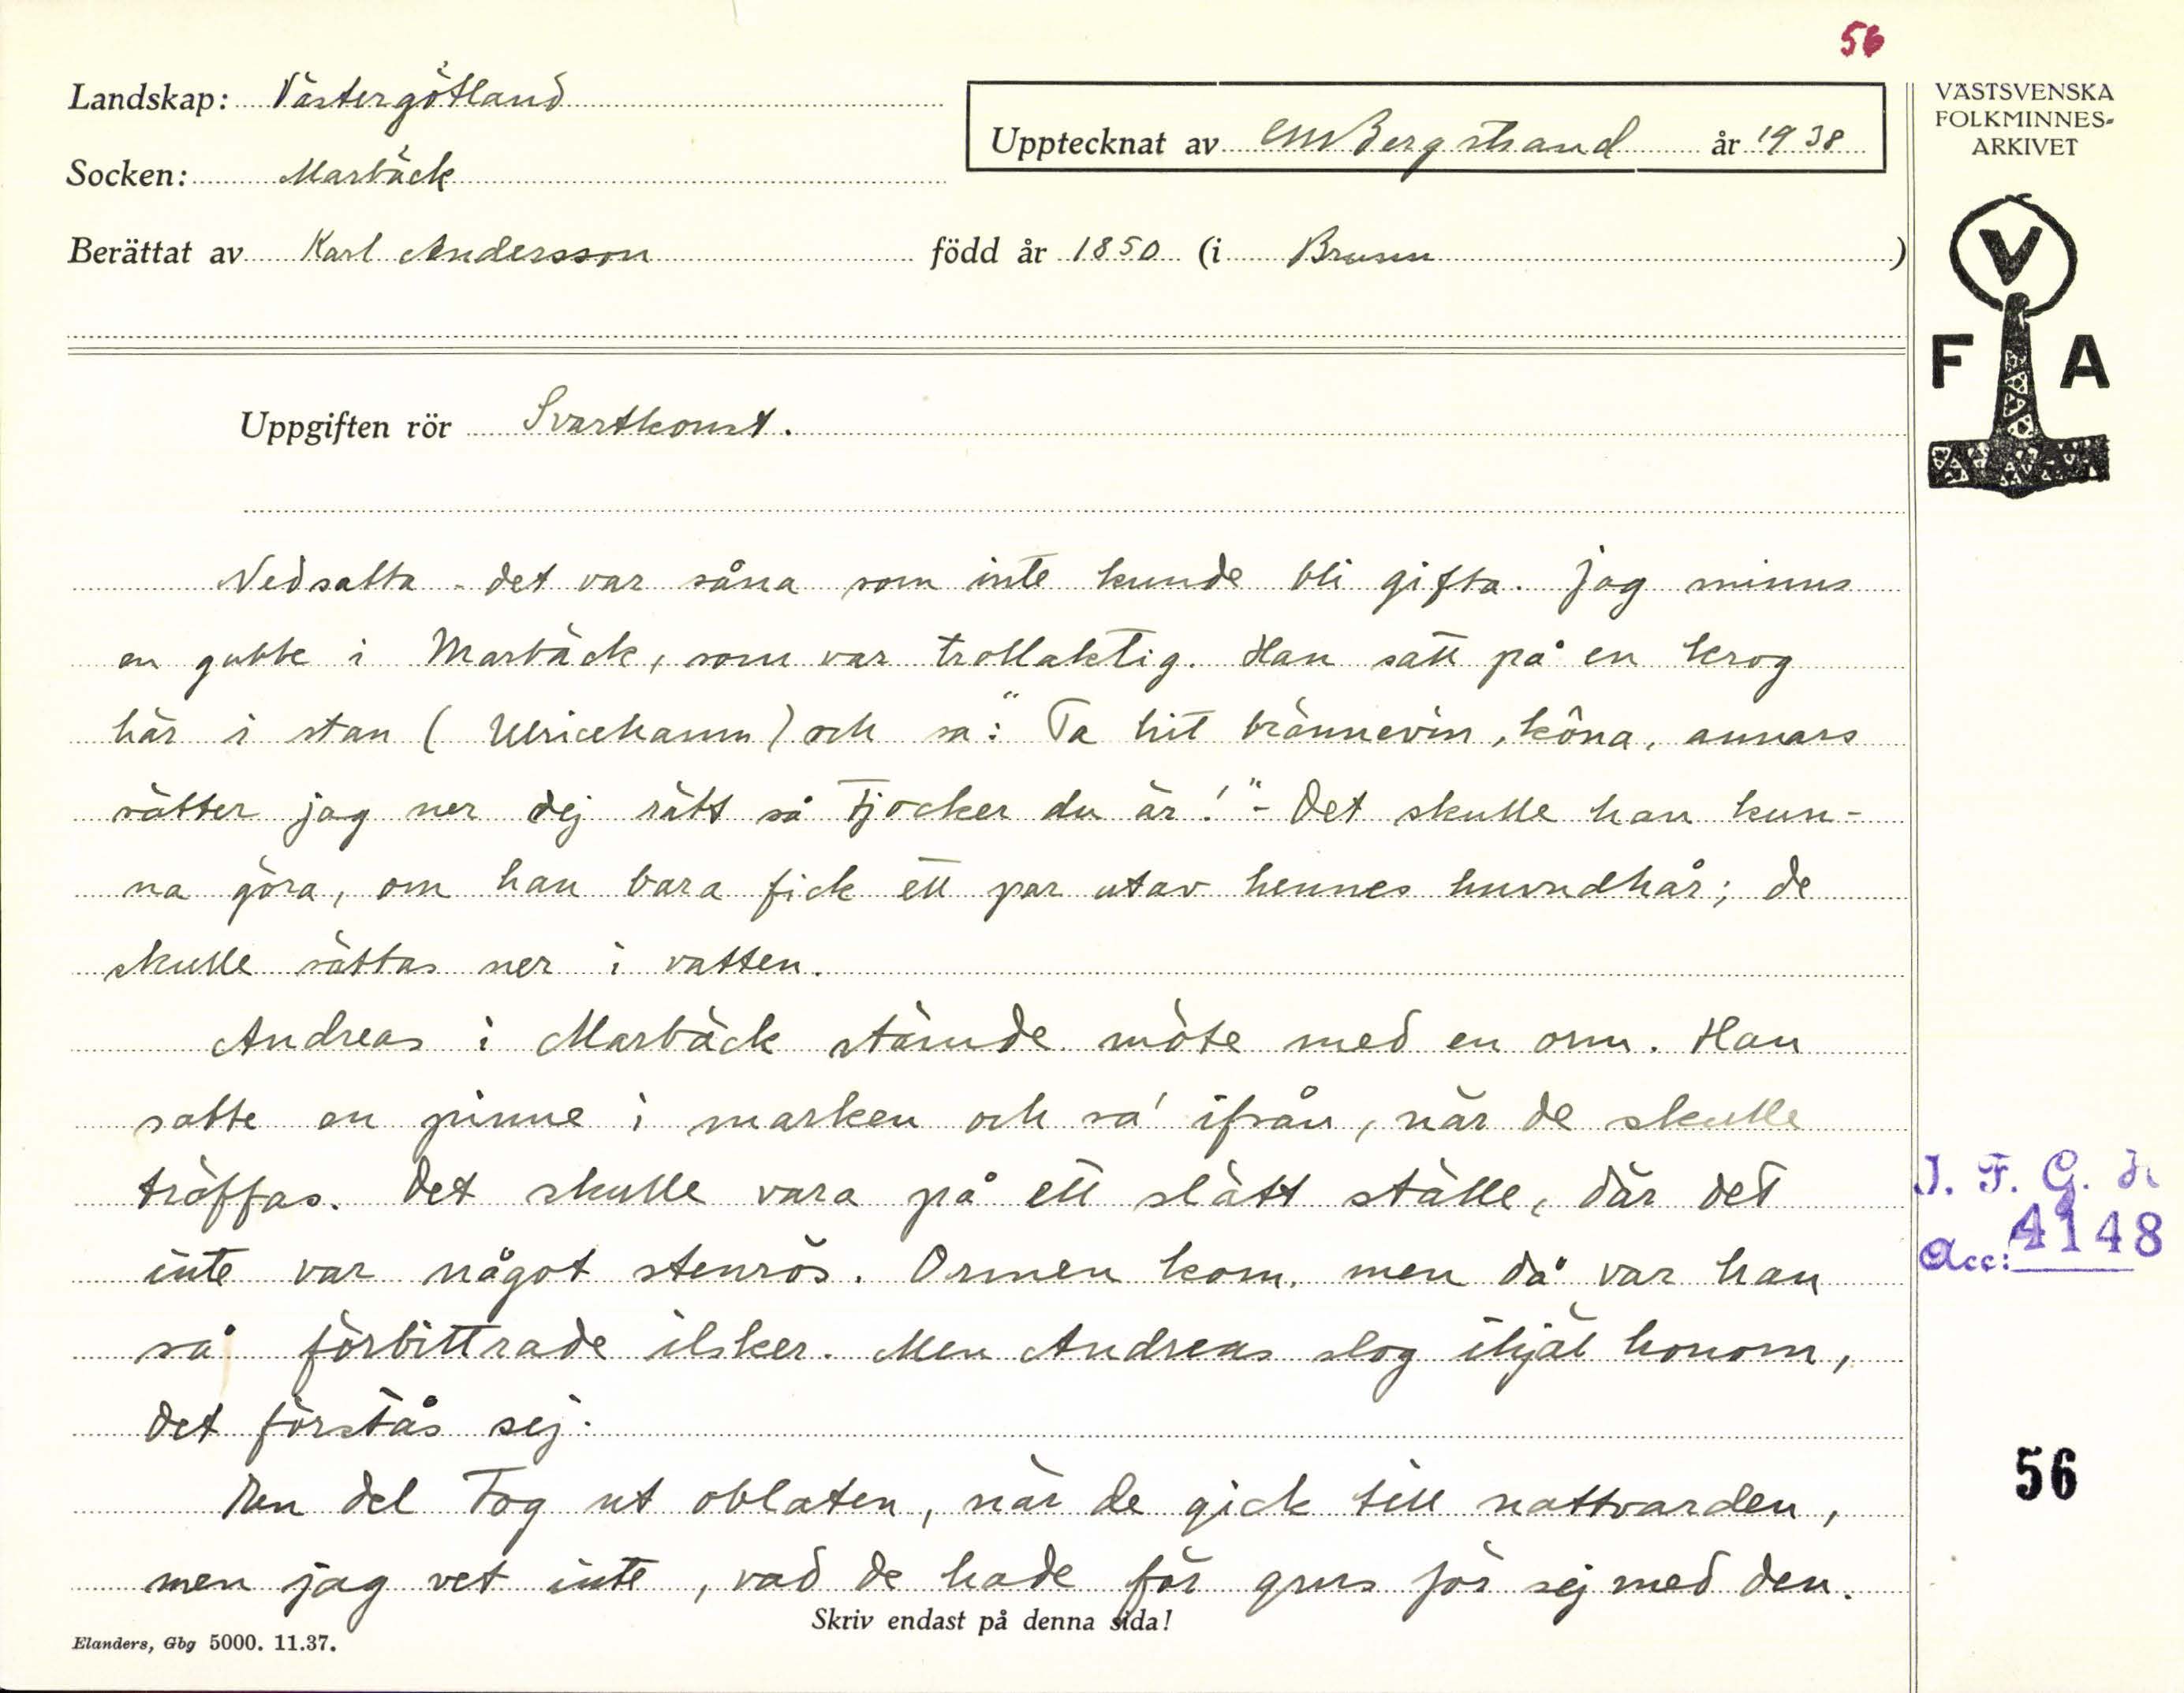 56
Landskap: Västergötland
Upptecknat av CMBergstrand år 1938
VÄSTSVENSKA
FOLKMINNES-
ARKIVET
Socken: Marbäck
Berättat av Karl Andersson född år 1850 (i Brunn)
V
F A
Uppgiften rör Svartkonst.
Nedsatta - det var såna som inte kunde bli gifta. Jag minns
en gubbe i Marbäck, som var trollaktig. Han satt på en krog
här i stan (Ulricehamn) och sa: "Ta hit brännevin, köna, annars
sätter jag ner dej rätt så tjocker du är!" - Det skulle han kun-
na göra, om han bara fick ett par utav hennes huvudhår; de
skulle sättas ner i vatten.
Andreas i Marbäck stämde möte med en orm. Han
satte en pinne i marken och sa' ifrån, när de skulle
träffas. Det skulle vara på ett slätt ställe, där det
inte var något stenrös. Ormen kom, men då var han
så förbittrade ilsker. Men Andreas slog ihjäl honom,
det förstås sej.
En del tog ut oblaten, när de gick till nattvarden,
men jag vet inte, vad de hade för grus för sej med den.
I. F. G. H.
Acc: 4148
56
Skriv endast på denna sida!
Elanders, Gbg 5000. 11.37.